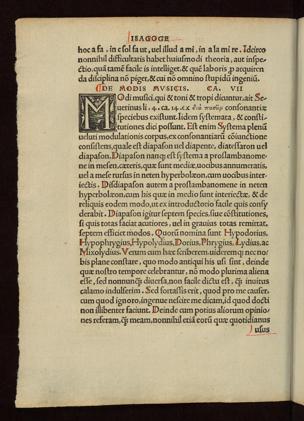 ISAGOGE
hoc a fa, in c sol fa ut, uel illud a mi, in a la mi re. Idcirco
nonnihil difficultatis habet huiusmodi theoria, aut inspe
ctio, quã tamẽ facile is intelliget, & quẽ laboris ꝑ acquiren
da disciplina nõ piget, & cui nõ omnino stupidũ ingeniũ.
DE MODIS MVSICIS. CA. VII
MOdi musici, qui & toni & tropi dicunt̃, ait Se
uerinus li. 4. ca. 14. ex consonantiæ
speciebus existunt. Iidem systemata, & consti
tutiones dici possunt. Est enim Systema plenũ
ueluti modulationis corpus, ex consonantiarũ cõiunctione
consistens, quale est diapason uel diapente, diatessaron uel
diapason. Diapason nanq; est systema a proslambanome
ne in mesen, cæteris, quæ sunt mediæ, uocibus annumeratis,
uel a mese rursus in neten hyperbolæon, cum uocibus inter
iectis. Disdiapason autem a proslambanomene in neten
hyperbolæon, cum his quæ in medio sunt interiectæ. & de
reliquis eodem modo, ut ex introductorio facile quis consy
derabit. Diapason igitur septem species, siue cõstitutiones,
si quis totas faciat acutiores, uel in grauius totas remittat,
septem efficiet modos. Quorũ nomina sunt Hypodorius,
Hypophrygius, Hypolydius, Dorius, Phrygius, Lydius, ac
Mixolydius. Verum cum hæc scriberem, uiderem q; nec no
bis plane constare, quo modo antiqui his usi sint, deinde
quæ nostro tempore celebrantur, nõ modo plurima aliena
esse, sed nonnunꝗ̃ diuersa, non facile dictu est, ꝗ̃ inuitus
calamo indulserim. Sed fortassis erit, quod pro me causer,
cum quod ignoro, ingenue nescire me dicam, id quod docti
non illibenter faciunt. Deinde cum potius aliorum opinio
nes referam, ꝗ̃ meam, nonnihil etiã eorũ quæ quotidianus
usus